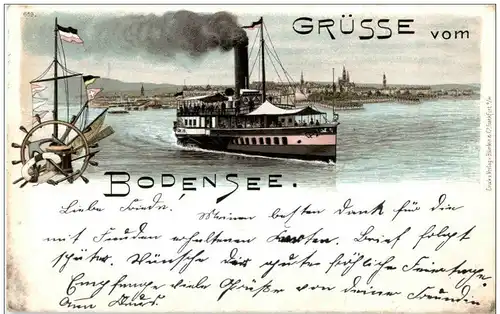 GRÜSSE vom
BODENSEE.
Liebe Frieda!
Meinen besten Dank für die
mit Freuden erhaltenen Karten. Brief folgt
später. Wünsche dir gute fröhliche Feiertage.
Empfange viele Grüße von deiner Freundin